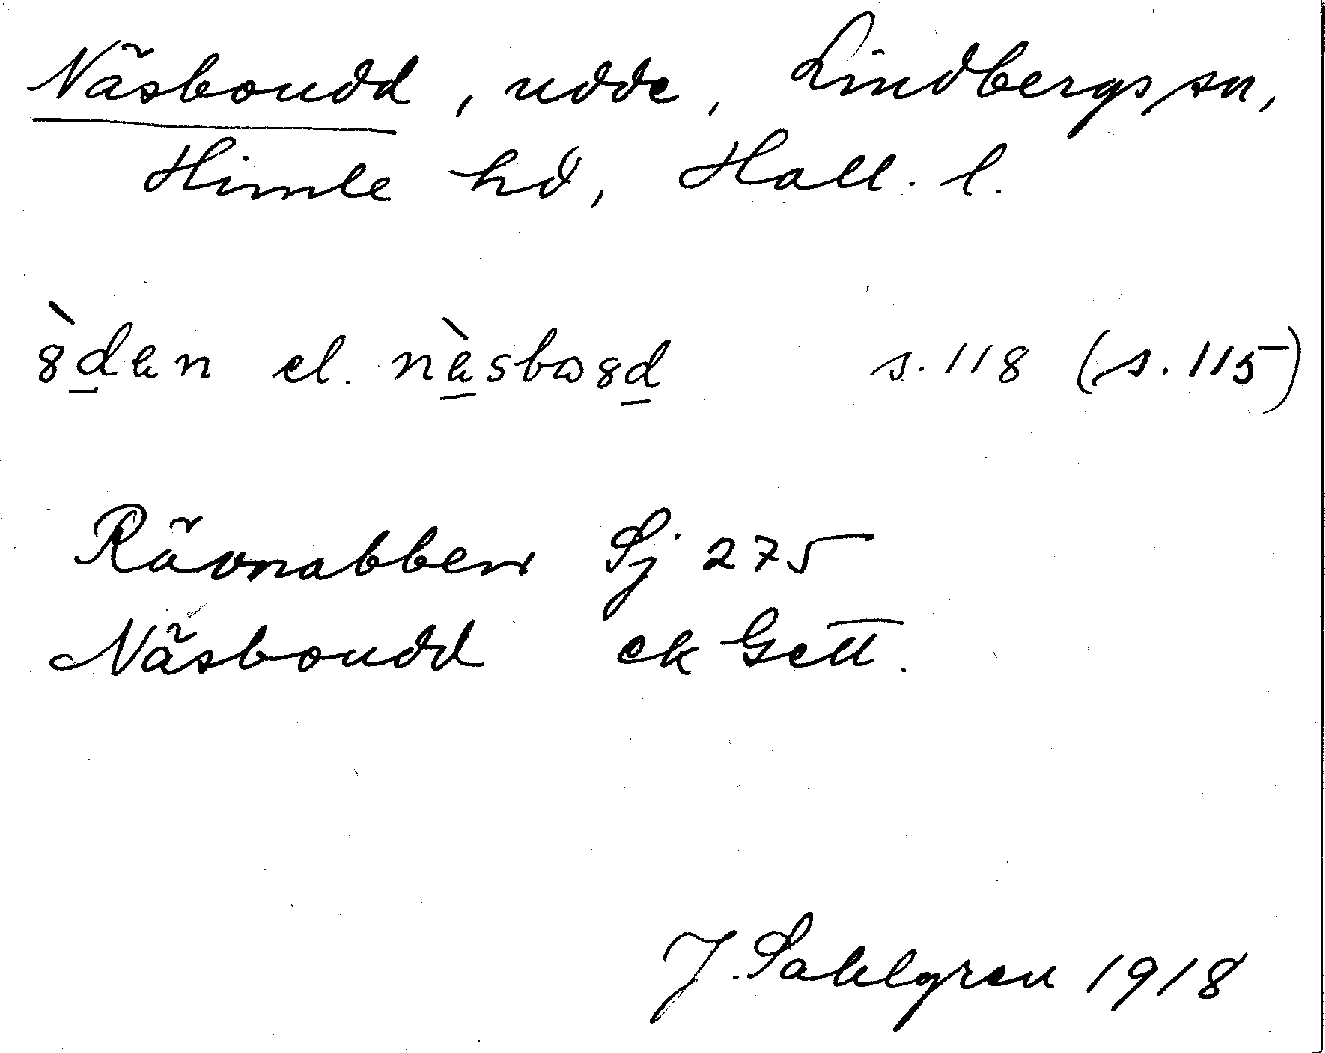 Näsboudd, udde, Lindbergs sn,
Himle hd, Hall. l.
el. s. 118 (s. 115)
Rävnabben Sj 275
Näsboudd ek Gett.
J. Sahlgren 1918